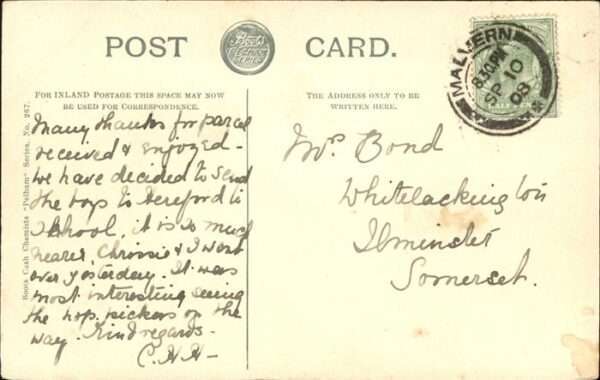 POST CARD.
Boots Cash Chemists "Pelham" Series, No. 267.
FOR INLAND POSTAGE THIS SPACE MAY NOW
BE USED FOR CORRESPONDENCE.
THE ADDRESS ONLY TO BE
WRITTEN HERE.
MALVERN
8.30PM
SP 10
08
Many thanks for parcel
received & enjoyed -
we have decided to send
the boys to Hereford to
School, it is so much
nearer, Chrissie & I went
over yesterday. It was
most interesting seeing
the hop pickers on the
way. Kind regards -
C.H.H -
Mrs Bond
Whitelackington
Ilminster
Somerset.